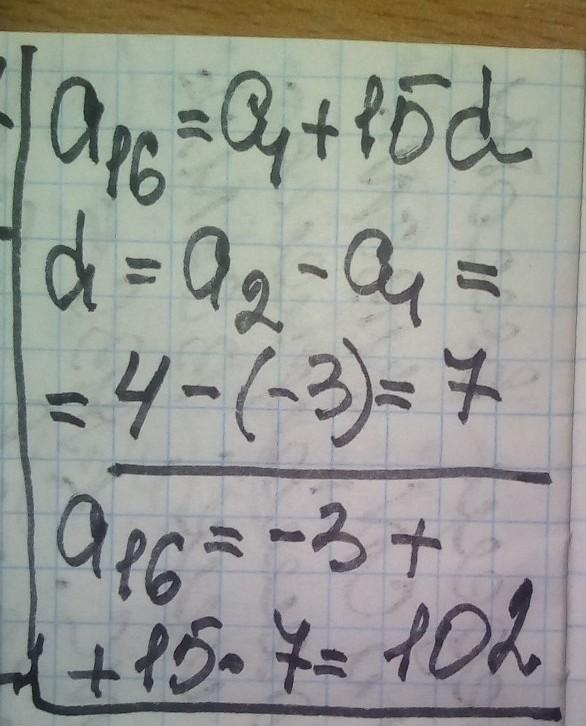 a₁₆ = a₁ + 15d
d = a₂ - a₁ =
= 4 - (-3) = 7
a₁₆ = -3 +
+ 15 · 7 = 102